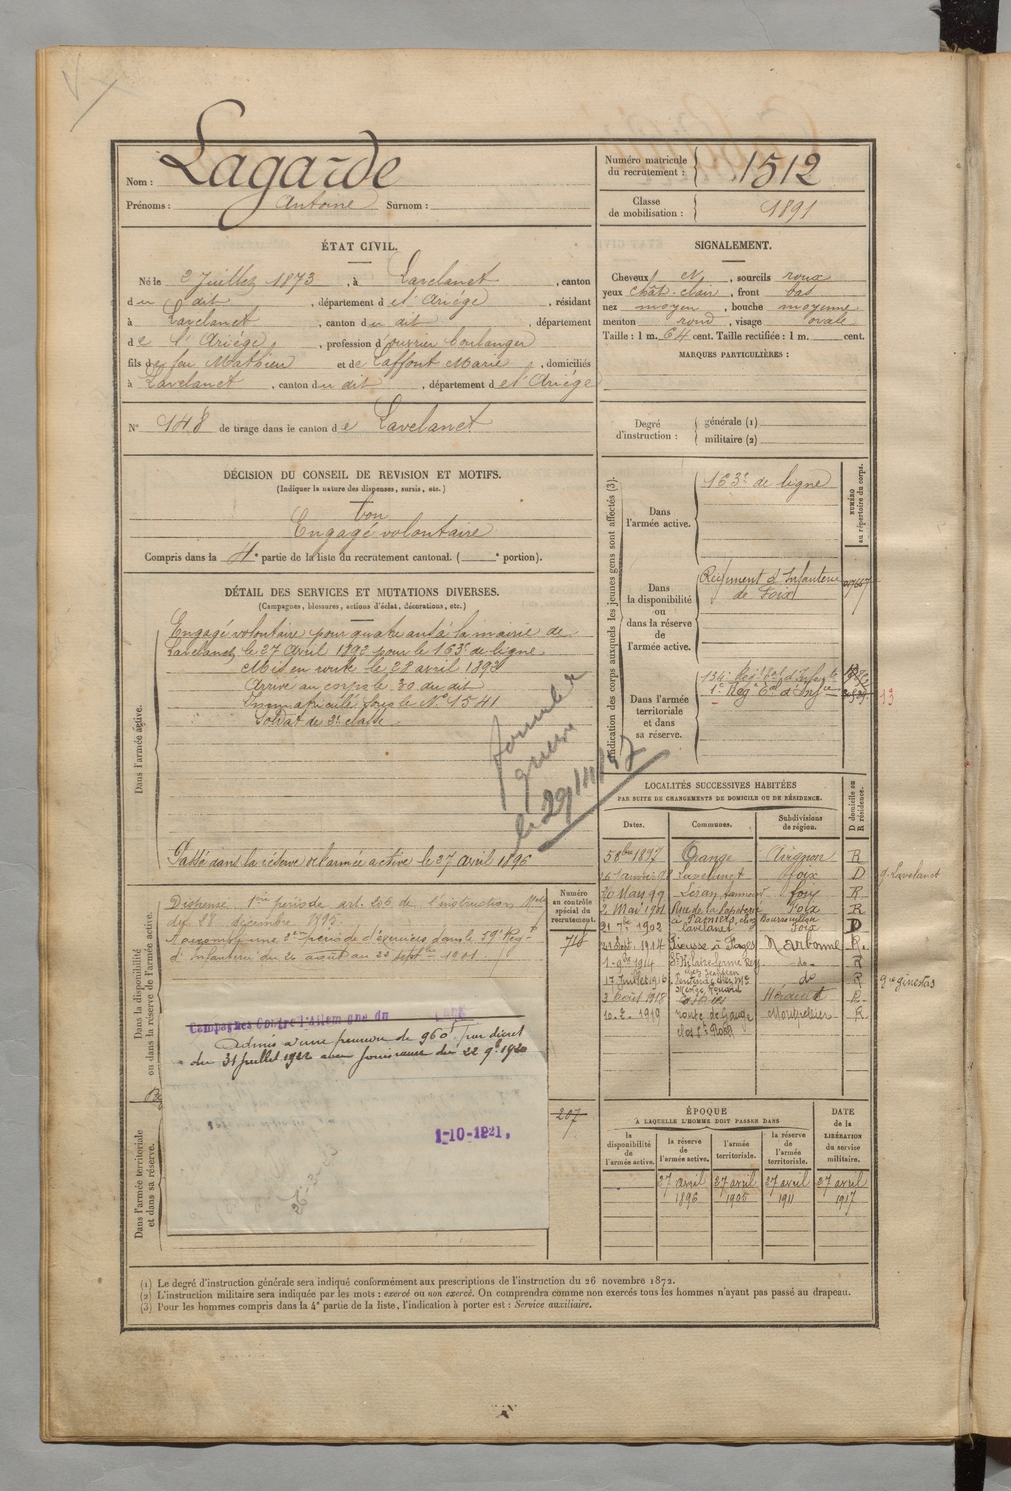 Nom : Lagarde
Prénoms : Antoine Surnom :
Numéro matricule du recrutement : 1512
Classe de mobilisation : 1891
ÉTAT CIVIL.
Né le 2 Juillet 1873, à Lavelanet, canton
du dit, département de l'Ariège, résidant
à Lavelanet, canton du dit, département
de l'Ariège, profession d'ouvrier boulanger
fils de feu Mathieu et de Laffont Marie, domiciliés
à Lavelanet, canton du dit, département de l'Ariège
N° 148 de tirage dans le canton de Lavelanet
SIGNALEMENT.
Cheveux N, sourcils roux
yeux chât-clair, front bas
nez moyen, bouche moyenne
menton rond, visage ovale
Taille : 1 m. 64 cent. Taille rectifiée : 1 m. cent.
MARQUES PARTICULIÈRES :
Degré d'instruction :
générale (1)
militaire (2)
DÉCISION DU CONSEIL DE REVISION ET MOTIFS.
(Indiquer la nature des dispenses, sursis, etc.)
bon
Engagé volontaire
Compris dans la 4e partie de la liste du recrutement cantonal. ( e portion).
DÉTAIL DES SERVICES ET MUTATIONS DIVERSES.
(Campagnes, blessures, actions d'éclat, décorations, etc.)
Dans l'armée active.
Engagé volontaire pour quatre ans à la mairie de
Lavelanet, le 27 Avril 1892 pour le 163e de ligne
Mis en route le 28 avril 1892
Arrivé au corps le 30 du dit
Immatriculé sous le No 1541
Soldat de 2e classe
le 29/11/37
Passé dans la réserve de l'armée active le 27 avril 1896
Indication des corps auxquels les jeunes gens sont affectés (3).
NUMÉRO au répertoire du corps.
Dans l'armée active.
163e de ligne
Dans la disponibilité ou dans la réserve de l'armée active.
Régiment d'Infanterie
de Foix
Dans l'armée territoriale et dans sa réserve.
134e Régt Ral d'Infrie
1er Régt Eal d'Infie
13
LOCALITÉS SUCCESSIVES HABITÉES
PAR SUITE DE CHANGEMENTS DE DOMICILE OU DE RÉSIDENCE.
Dates. Communes. Subdivisions de région. D domicile ou R résidence.
5 8bre 1897 Orange Avignon R
Lavelanet Foix D g. Lavelanet
20 Mars 99 Foix R
2 Mai 1901 Rue de la Foix R
21 7bre 1902 Lavelanet Foix D
21 Sept. 1914 Narbonne R.
1-9bre 1914 do R
17 Juillet 1916 do R gie ginestas
3 Août 1918 Hérault R
10-2-1919 route de Ganges Montpellier R
clos St Roch
Dans la disponibilité ou dans la réserve de l'armée active.
Numéro au contrôle spécial du recrutement.
Dispensé 1ère période art. 206 de l'instruction Mlle
du 28 décembre 1895.
A accompli une 2e période d'exercices dans le 59e Régt
d'Infanterie du 26 août au 22 septbre 1901
Campagnes Contre l'Allemagne du
Admis à une pension de 960f par décret
du 31 juillet 1922 avec jouissance du 22 9b 1920
1-10-1921,
207
Dans l'armée territoriale et dans sa réserve.
ÉPOQUE
À LAQUELLE L'HOMME DOIT PASSER DANS
la disponibilité de l'armée active.
la réserve de l'armée active.
l'armée territoriale.
la réserve de l'armée territoriale.
DATE de la LIBÉRATION du service militaire.
27 avril 1896
27 avril 1905
27 avril 1911
27 avril 1917
(1) Le degré d'instruction générale sera indiqué conformément aux prescriptions de l'instruction du 26 novembre 1872.
(2) L'instruction militaire sera indiquée par les mots : exercé ou non exercé. On comprendra comme non exercés tous les hommes n'ayant pas passé au drapeau.
(3) Pour les hommes compris dans la 4e partie de la liste, l'indication à porter est : Service auxiliaire.